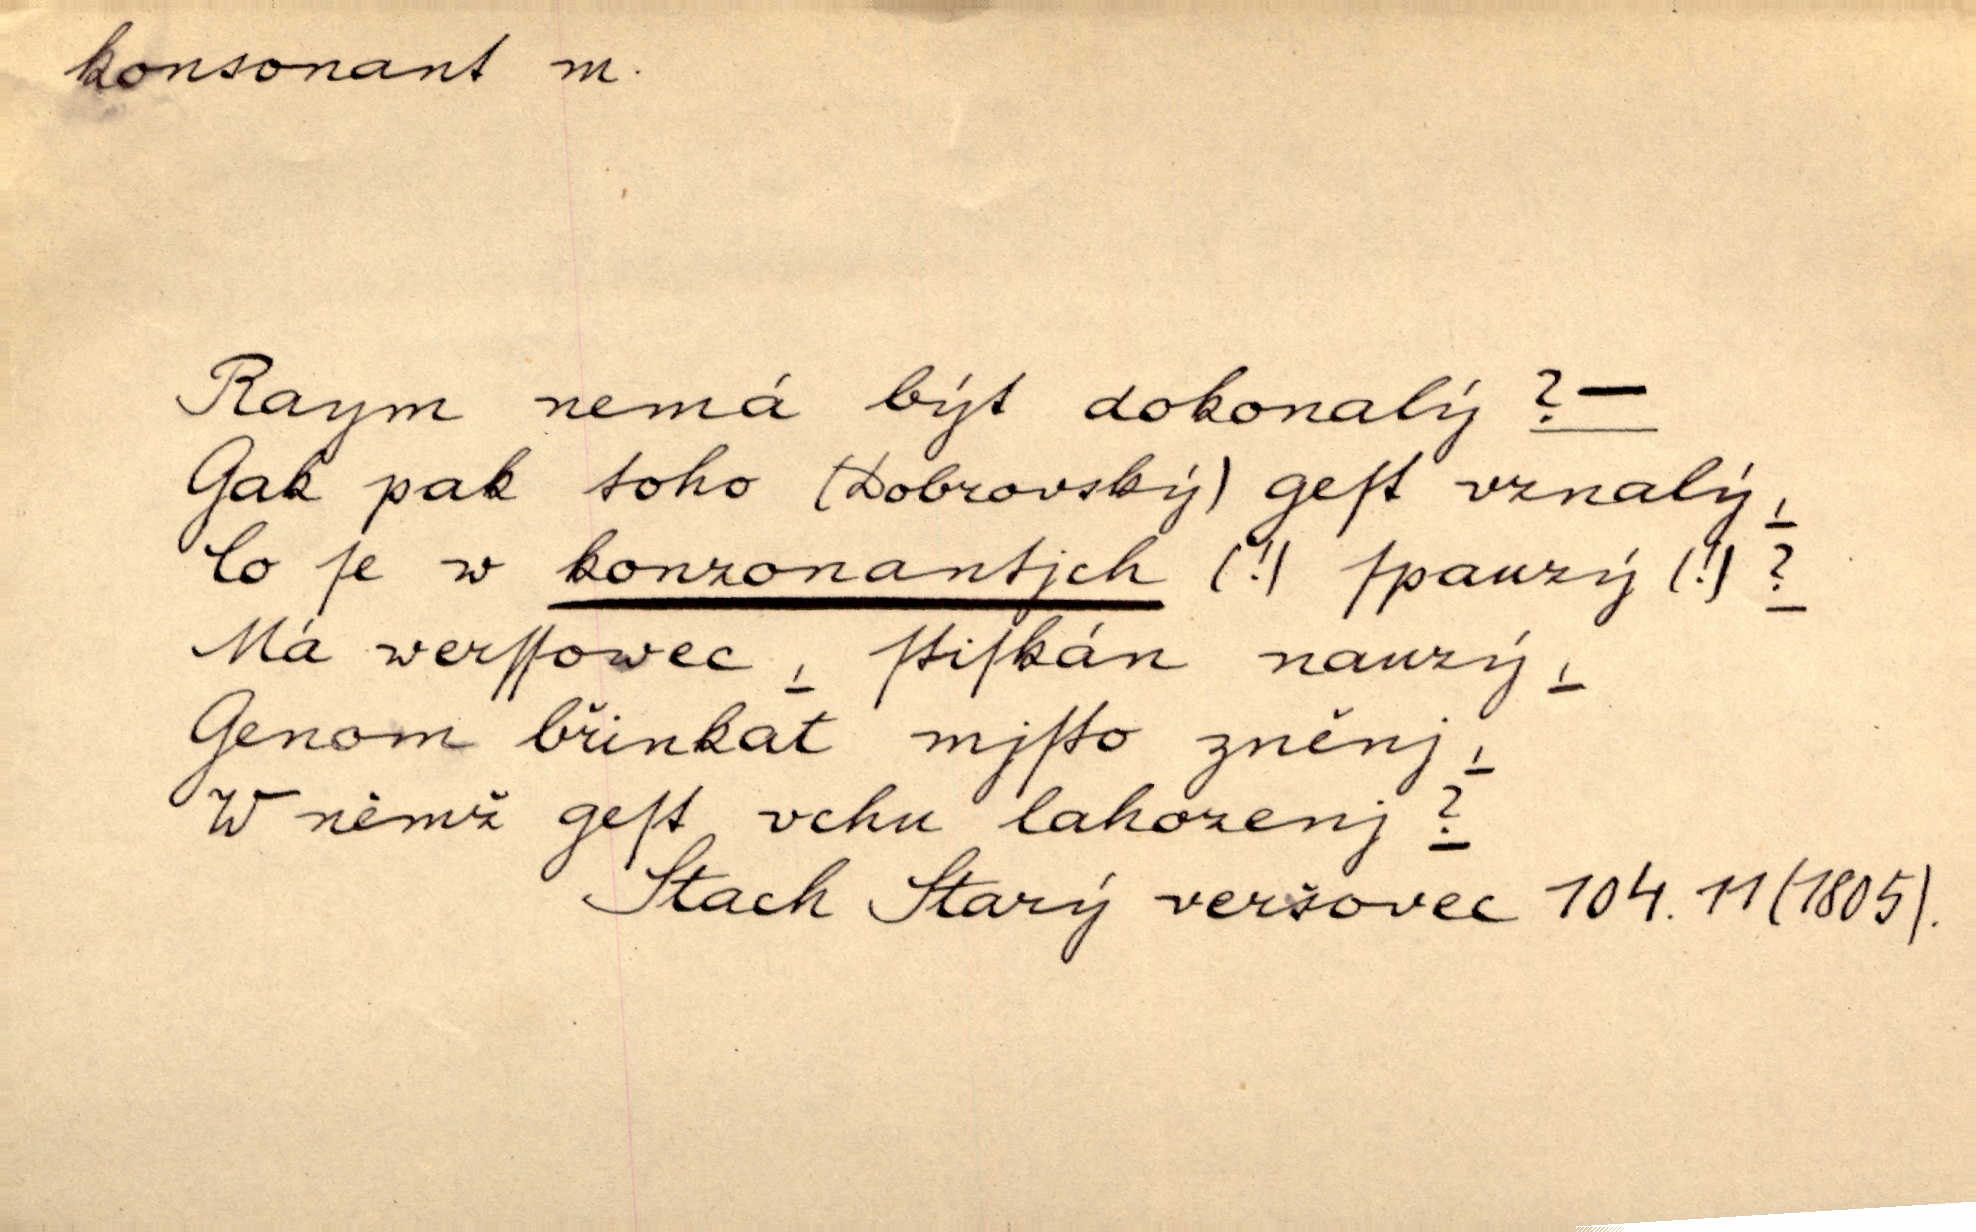 konsonant m.
Raym nemá být dokonalý ? —
Gak pak toho (Dobrovský) geſt vznalý,
Co ſe w konzonantjch (!) ſpauzý (!) ?
Má werſſowec, ſtiſkán nauzý,
Genom břinkat mjſto zněnj,
W němž geſt vchu lahozenj ?
Stach Starý veršovec 104. 11 (1805).